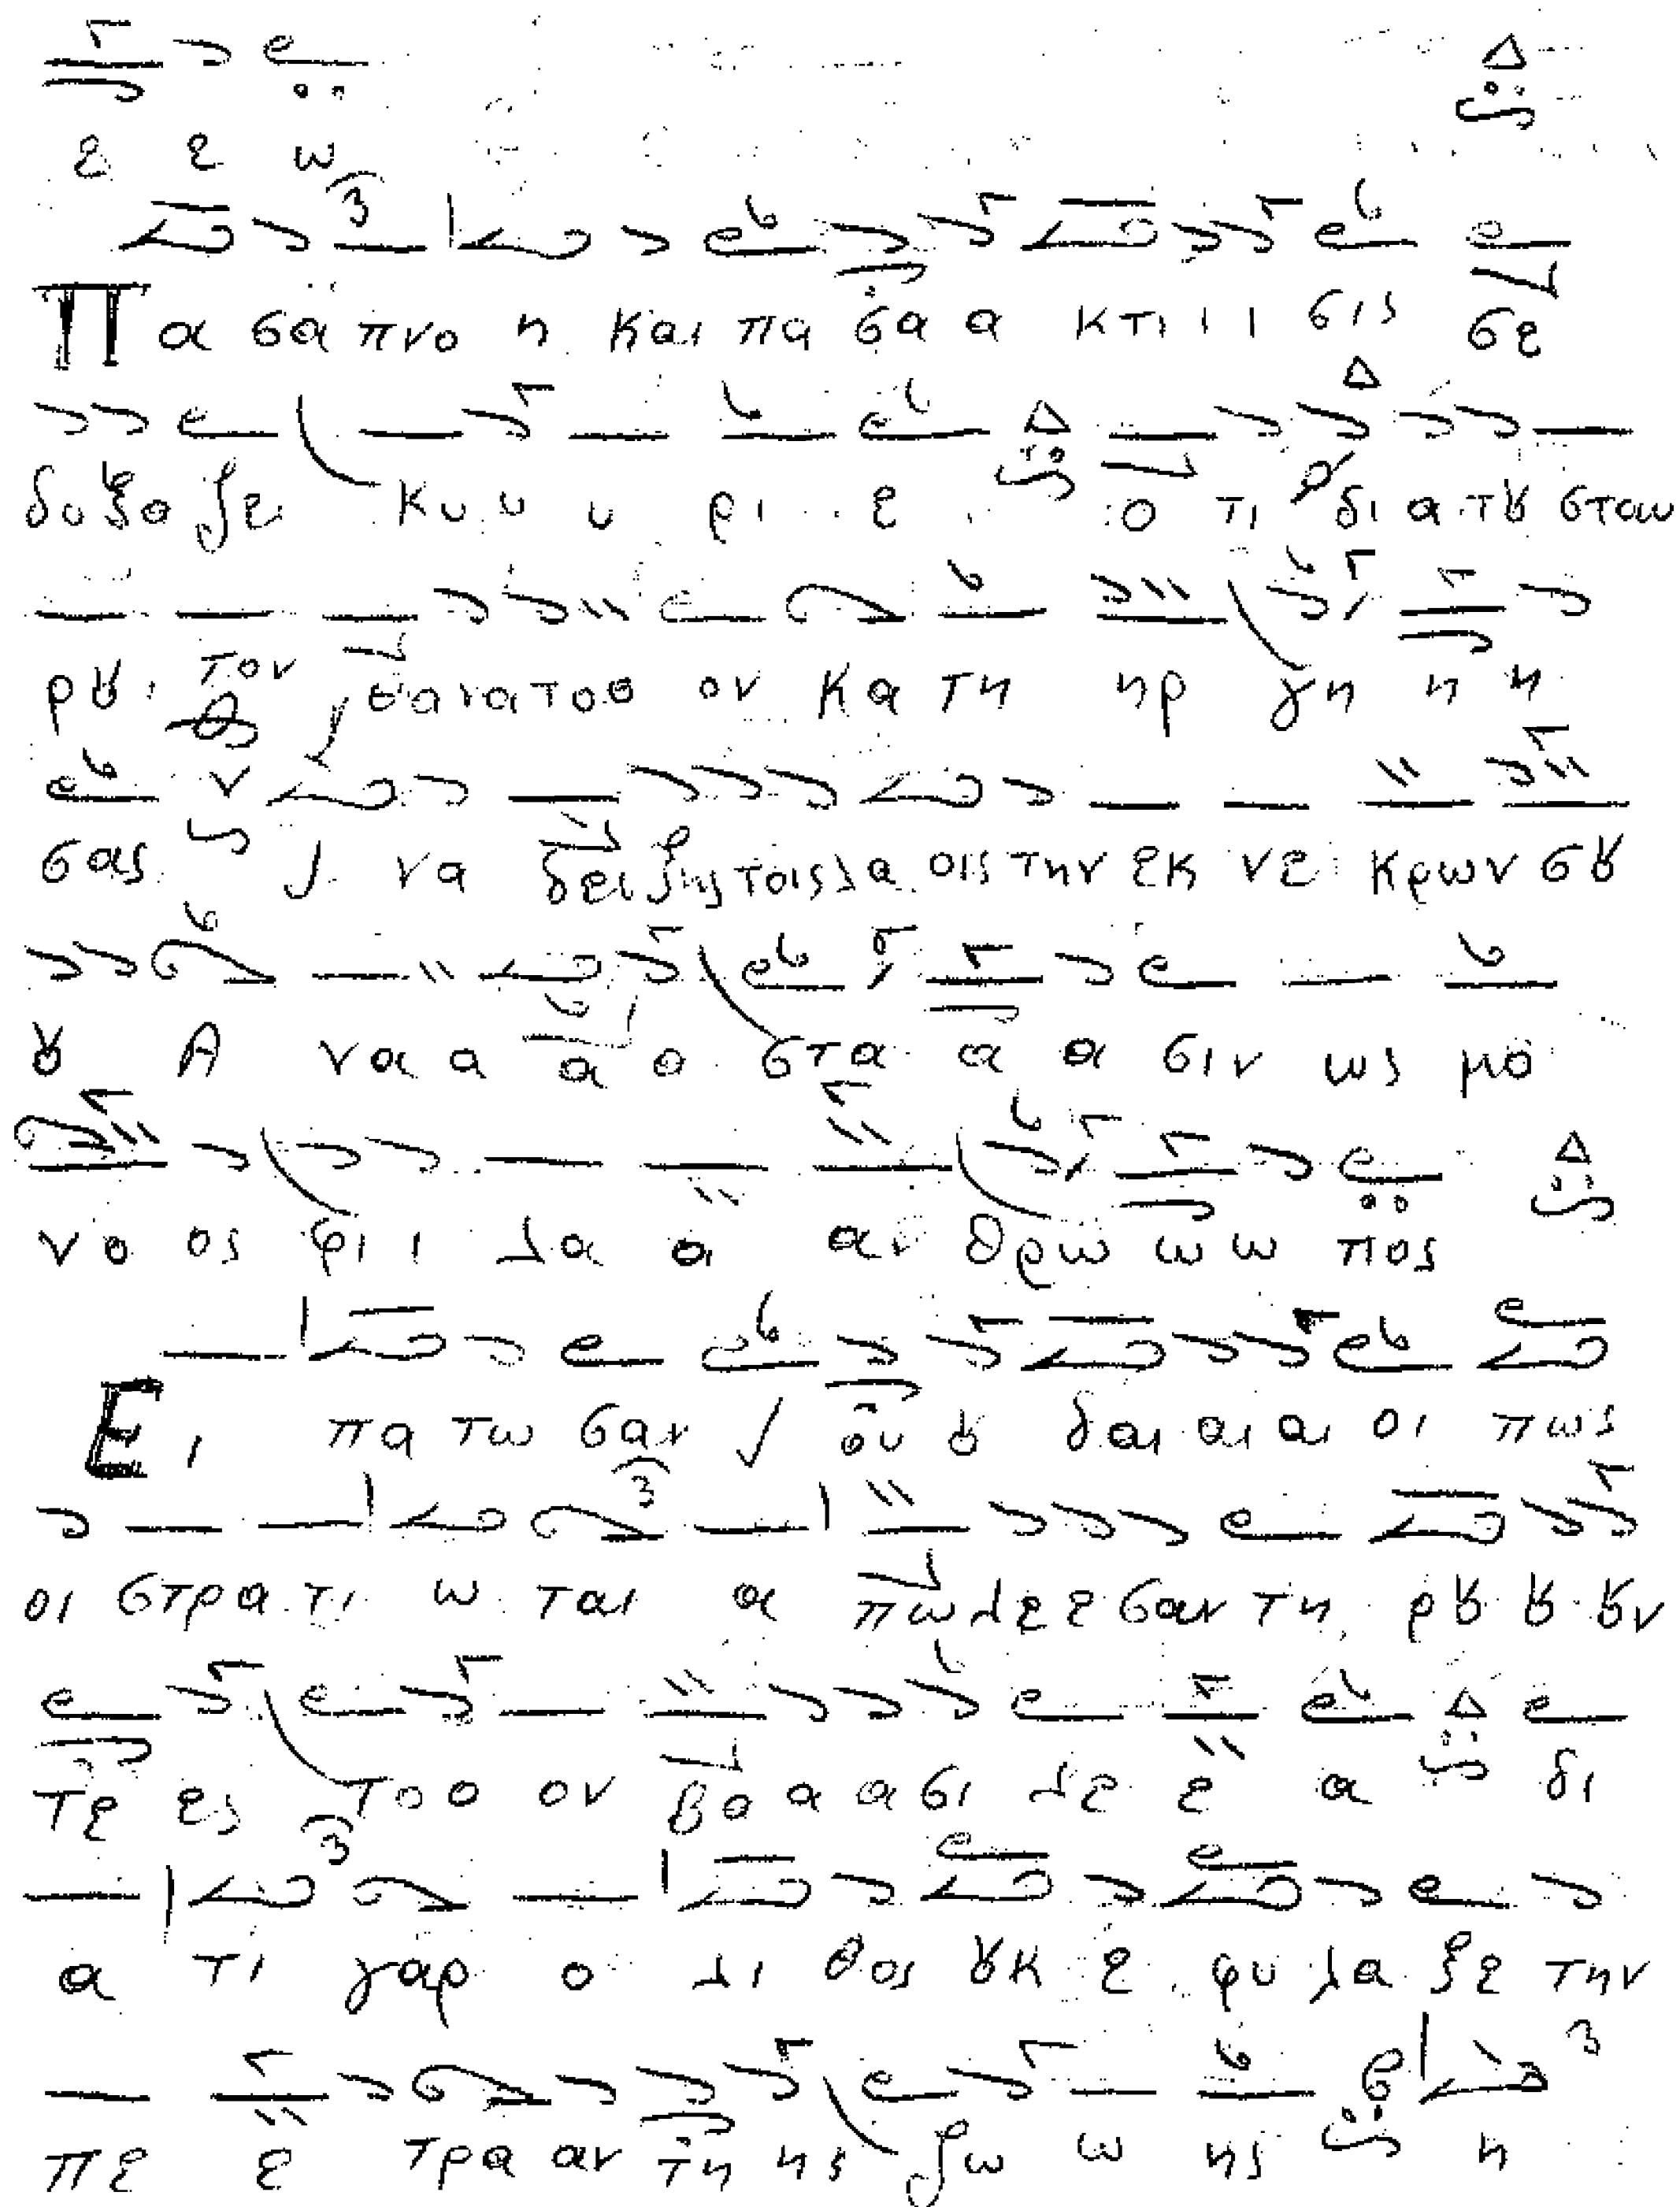 ε ε ω
Πα σα πνο η και πα σα α κτι ι ι σις σε
δο ξα ζει κυ υ υ ρι ε ο τι δι α τȣ σταυ
ρȣ τον θα να το ο ον κα τη ηρ γη η η
σας ι να δει ξης τοις λα οις την εκ νε κρων σȣ
ȣ Α να α α α στα α α σιν ως μο
νο ος φι ι λα α αν θρω ω ω πος
Ει πα τω σαν ου ȣ δαι αι αι οι πως
οι στρα τι ω ται α πω λε ε σαν τη ρȣ ȣ ȣν
τε ες το ο ον βα α α σι λε ε α δι
α τι γαρ ο λι θος ȣκ ε φυ λα ξε την
πε ε τρα αν τη ης ζω ω ης η